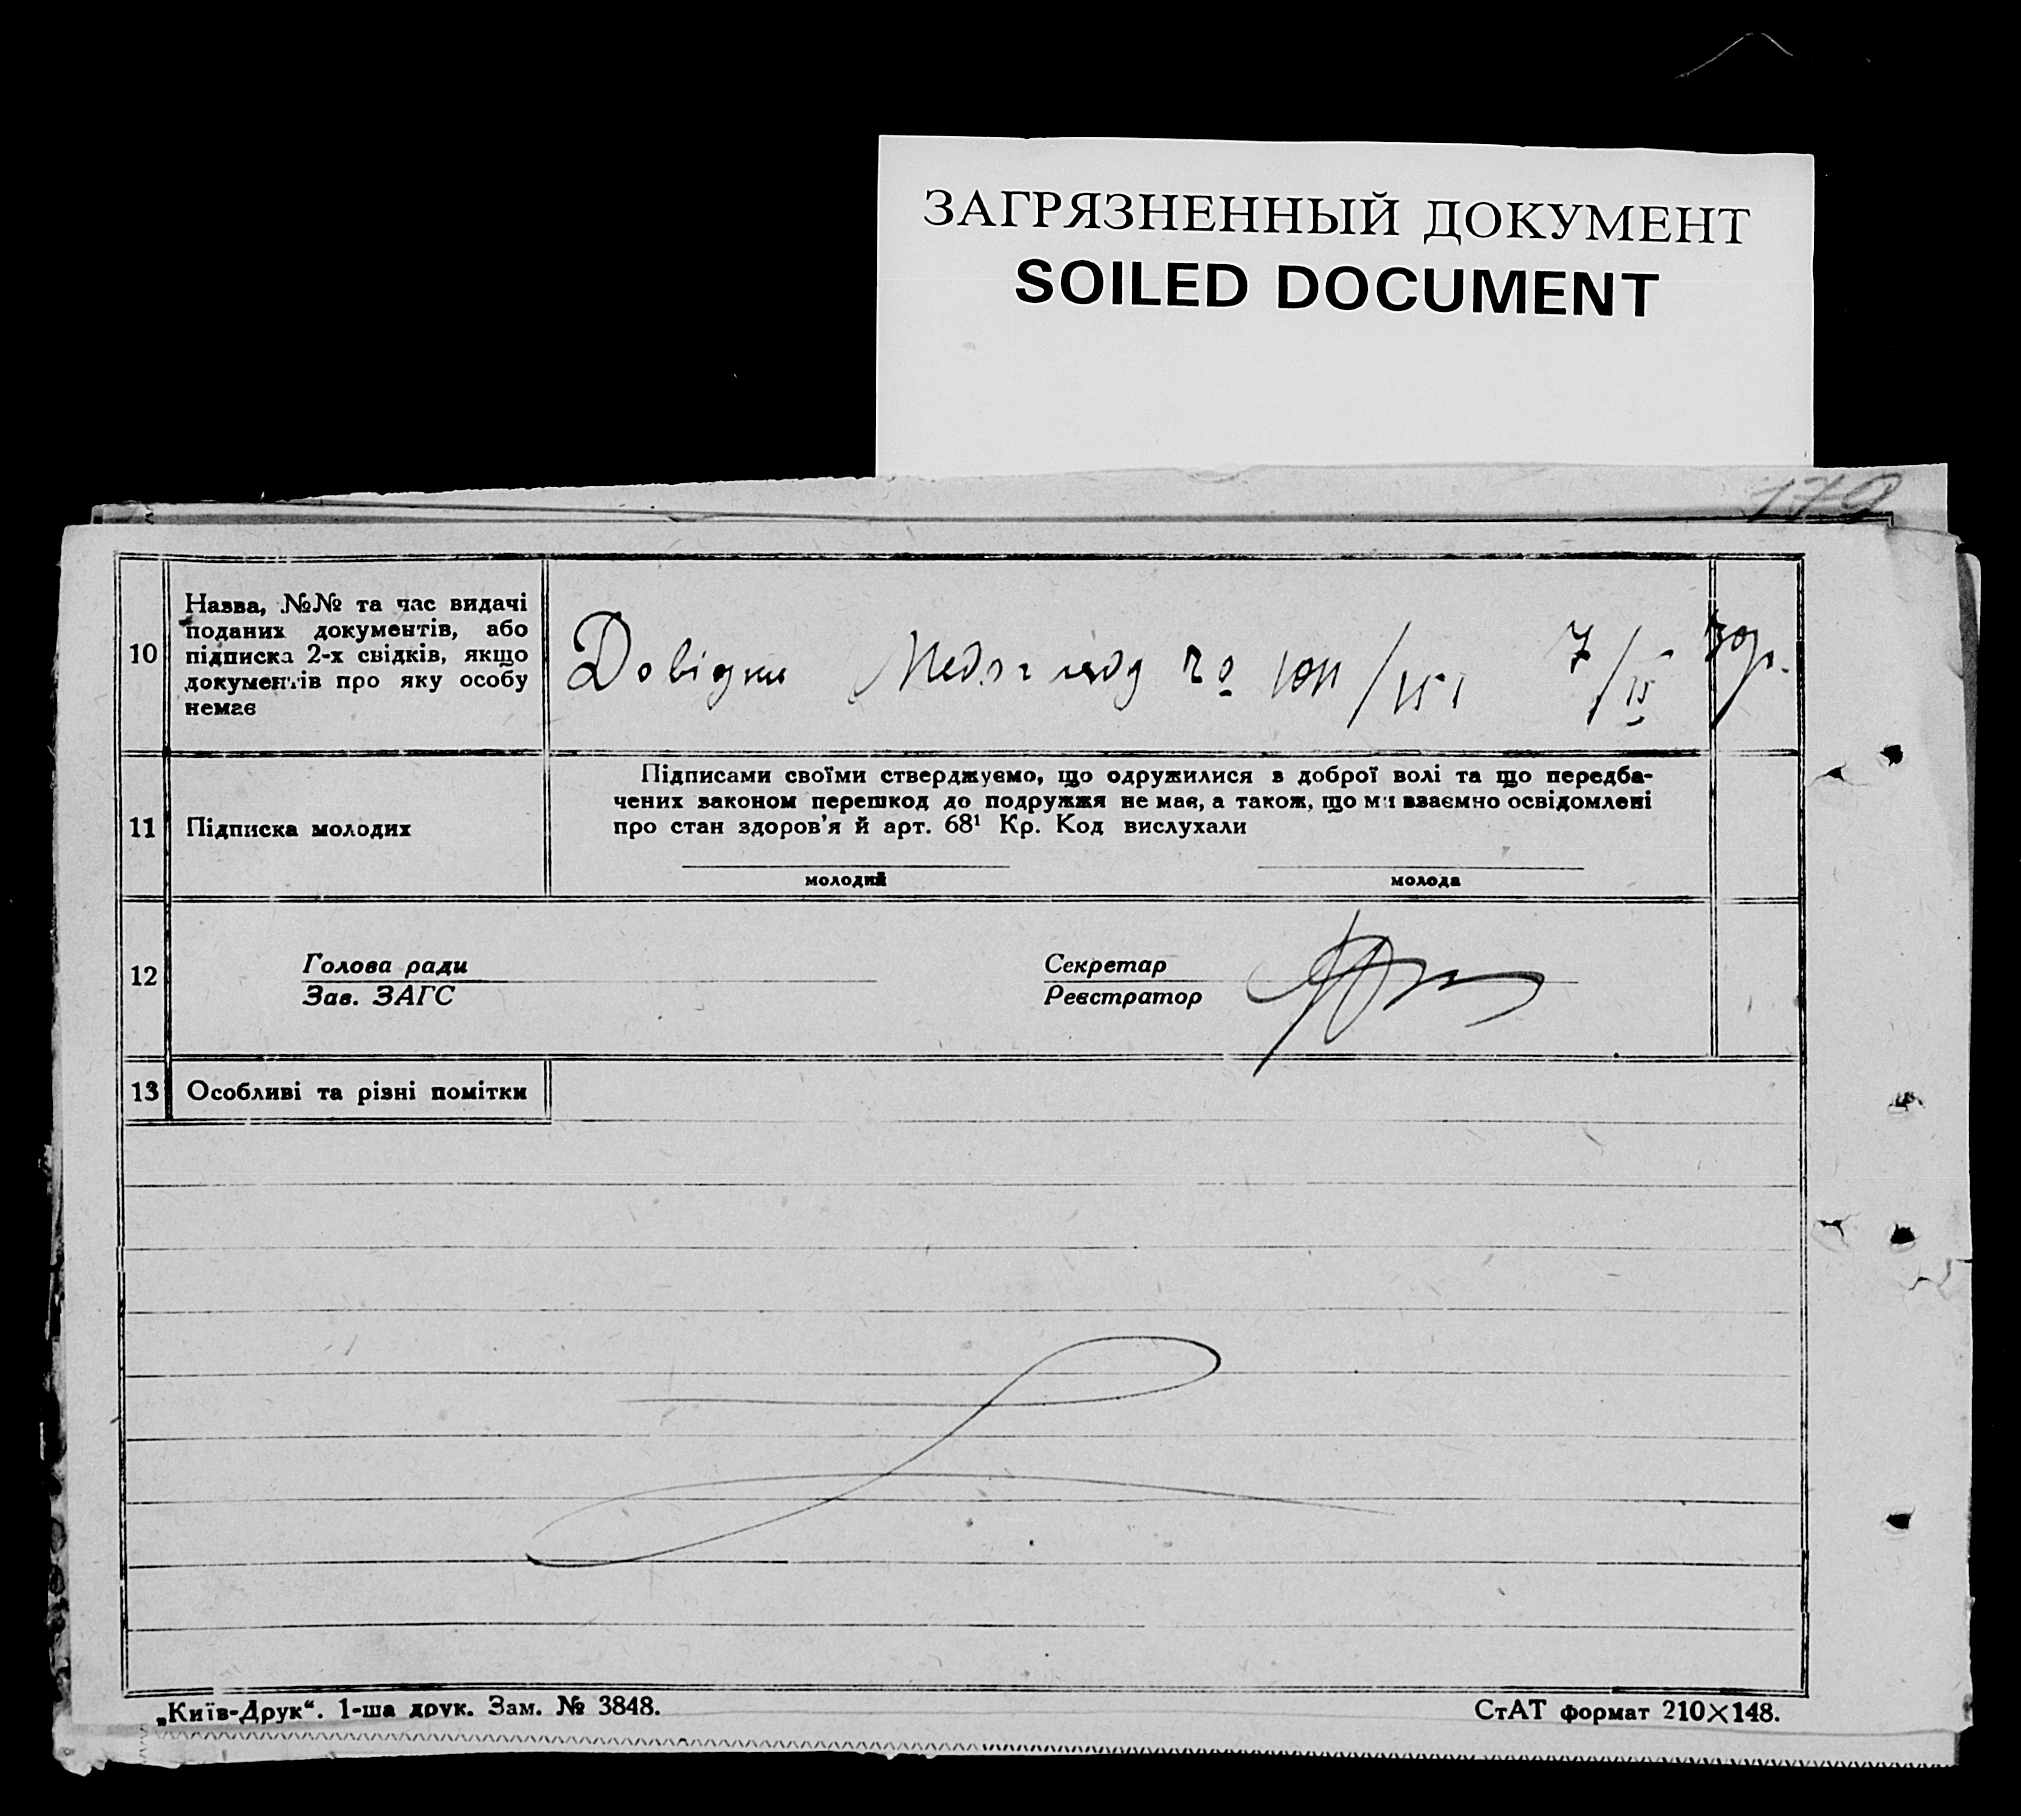 ЗАГРЯЗНЕННЫЙ ДОКУМЕНТ
SOILED DOCUMENT
179
10
Назва, №№ та час видачі
поданих документів, або
підписка 2-х свідків, якщо
документів про яку особу
немає
Довідки
7/II
11
Підписка молодих
Підписами своїми стверджуємо, що одружилися в доброї волі та що передба-
чених законом перешкод до подружжя не має, а також, що ми взаємно освідомлені
про стан здоров'я й арт. 68¹ Кр. Код вислухали
молодий
молода
12
Голова ради
Зав. ЗАГС
Секретар
Реєстратор
13
Особливі та різні помітки
„Київ-Друк“. 1-ша друк. Зам. № 3848.
СтАТ формат 210×148.